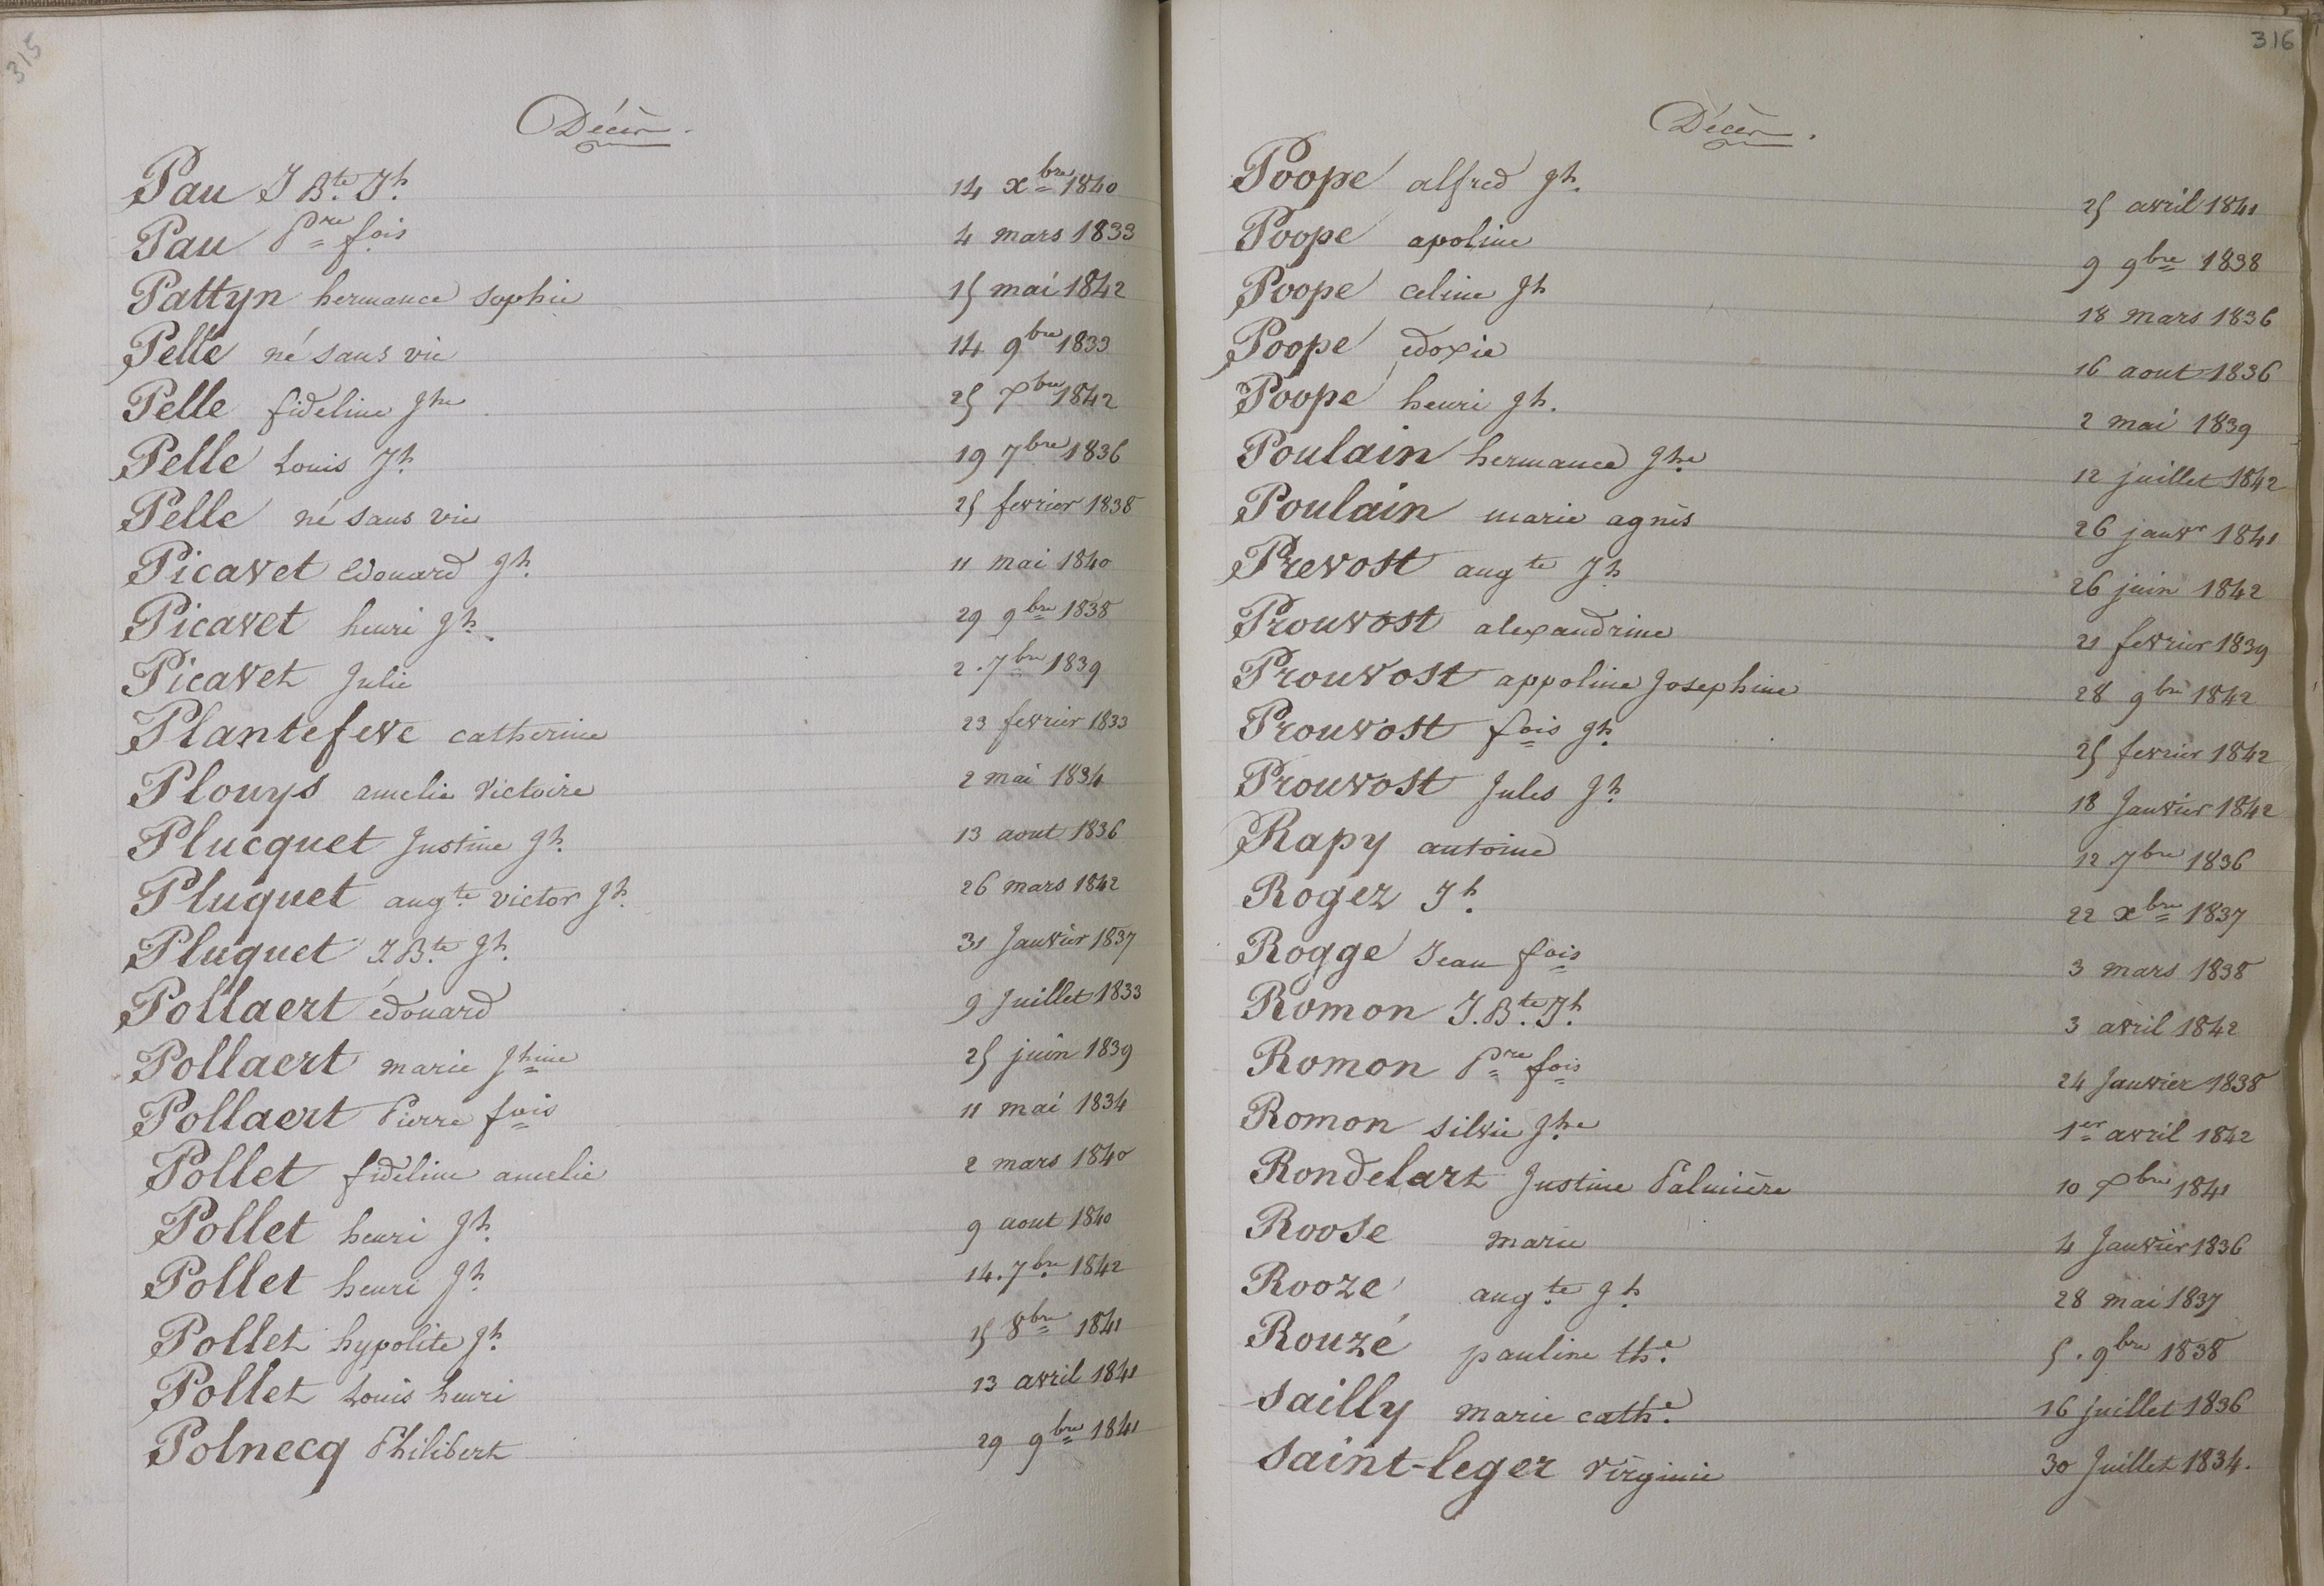 315
Décès.
Pau J Bte Jh. 14 xbre 1840
Pau Pre fois 4 mars 1833
Pattyn hermance sophie 15 mai 1842
Pelle né sans vie 14 9bre 1833
Pelle fideline Jhe 25 xbre 1842
Pelle Louis Jh 19 7bre 1836
Pelle né sans vie 25 fevrier 1838
Picavet Edouard Jh. 11 mai 1840
Picavet henri Jh. 29 9bre 1838
Picavet Julie 2. 7bre 1839
Plantefeve catherine 23 fevrier 1833
Plouys amelie Victoire 2 mai 1834
Plucquet Justine Jh. 13 aout 1836
Pluquet augte victor Jh. 26 mars 1842
Pluquet J. Bte Jh. 31 Janvier 1837
Pollaert édouard 9 Juillet 1833
Pollaert marie Jhine 25 juin 1839
Pollaert Pierre fois 11 mai 1834
Pollet fideline amelie 2 mars 1840
Pollet henri Jh. 9 aout 1840
Pollet henri Jh. 14. 7bre 1842
Pollet hypolite Jh. 15 8bre 1841
Pollet Louis henri 13 avril 1841
Polnecq Philibert 29 9bre 1841
316
Décès.
Poope alfred Jh. 25 avril 1841
Poope apoline 9 9bre 1838
Poope celine Jh 18 mars 1836
Poope edoxie 16 aout 1836
Poope henri Jh. 2 mai 1839
Poulain hermance Jhe 12 juillet 1842
Poulain marie agnès 26 janvr 1841
Prevost augte Jh 26 juin 1842
Prouvost alexandrine 21 fevrier 1839
Prouvost appoline Josephine 28 9bre 1842
Prouvost fois Jh. 25 fevrier 1842
Prouvost Jules Jh. 18 Janvier 1842
Rapy antoine 12. 7bre 1836
Rogez Jh. 22 xbre 1837
Rogge Jean fois 3 mars 1838
Romon J. Bte Jh. 3 avril 1842
Romon Pre fois 24 Janvier 1838
Romon silvie Jhe 1er avril 1842
Rondelart Justine Palmière 10 xbre 1841
Roose marie 4 Janvier 1836
Rooze augte Jh. 28 mai 1837
Rouzé pauline the. 5. 9bre 1838
Sailly marie cathe. 16 juillet 1836
Saint-leger Virginie 30 Juillet 1834.